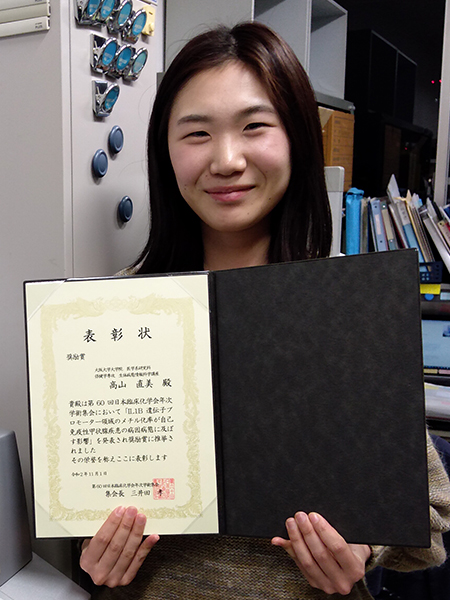 表彰状
奨励賞
大阪大学大学院 医学系研究科
保健学専攻 生体病態情報科学講座
高山 直美 殿
貴殿は第60回日本臨床化学会年次
学術集会において「IL1B 遺伝子プ
ロモーター領域のメチル化率が自己
免疫性甲状腺疾患の病因病態に及ぼ
す影響」を発表され奨励賞に推挙さ
れました
その学督を称えここに表彰します
令和2年11月1日
第60回日本臨床化学会年次学術集会
集会長 三井田 孝